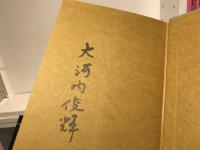 大河内俊輝